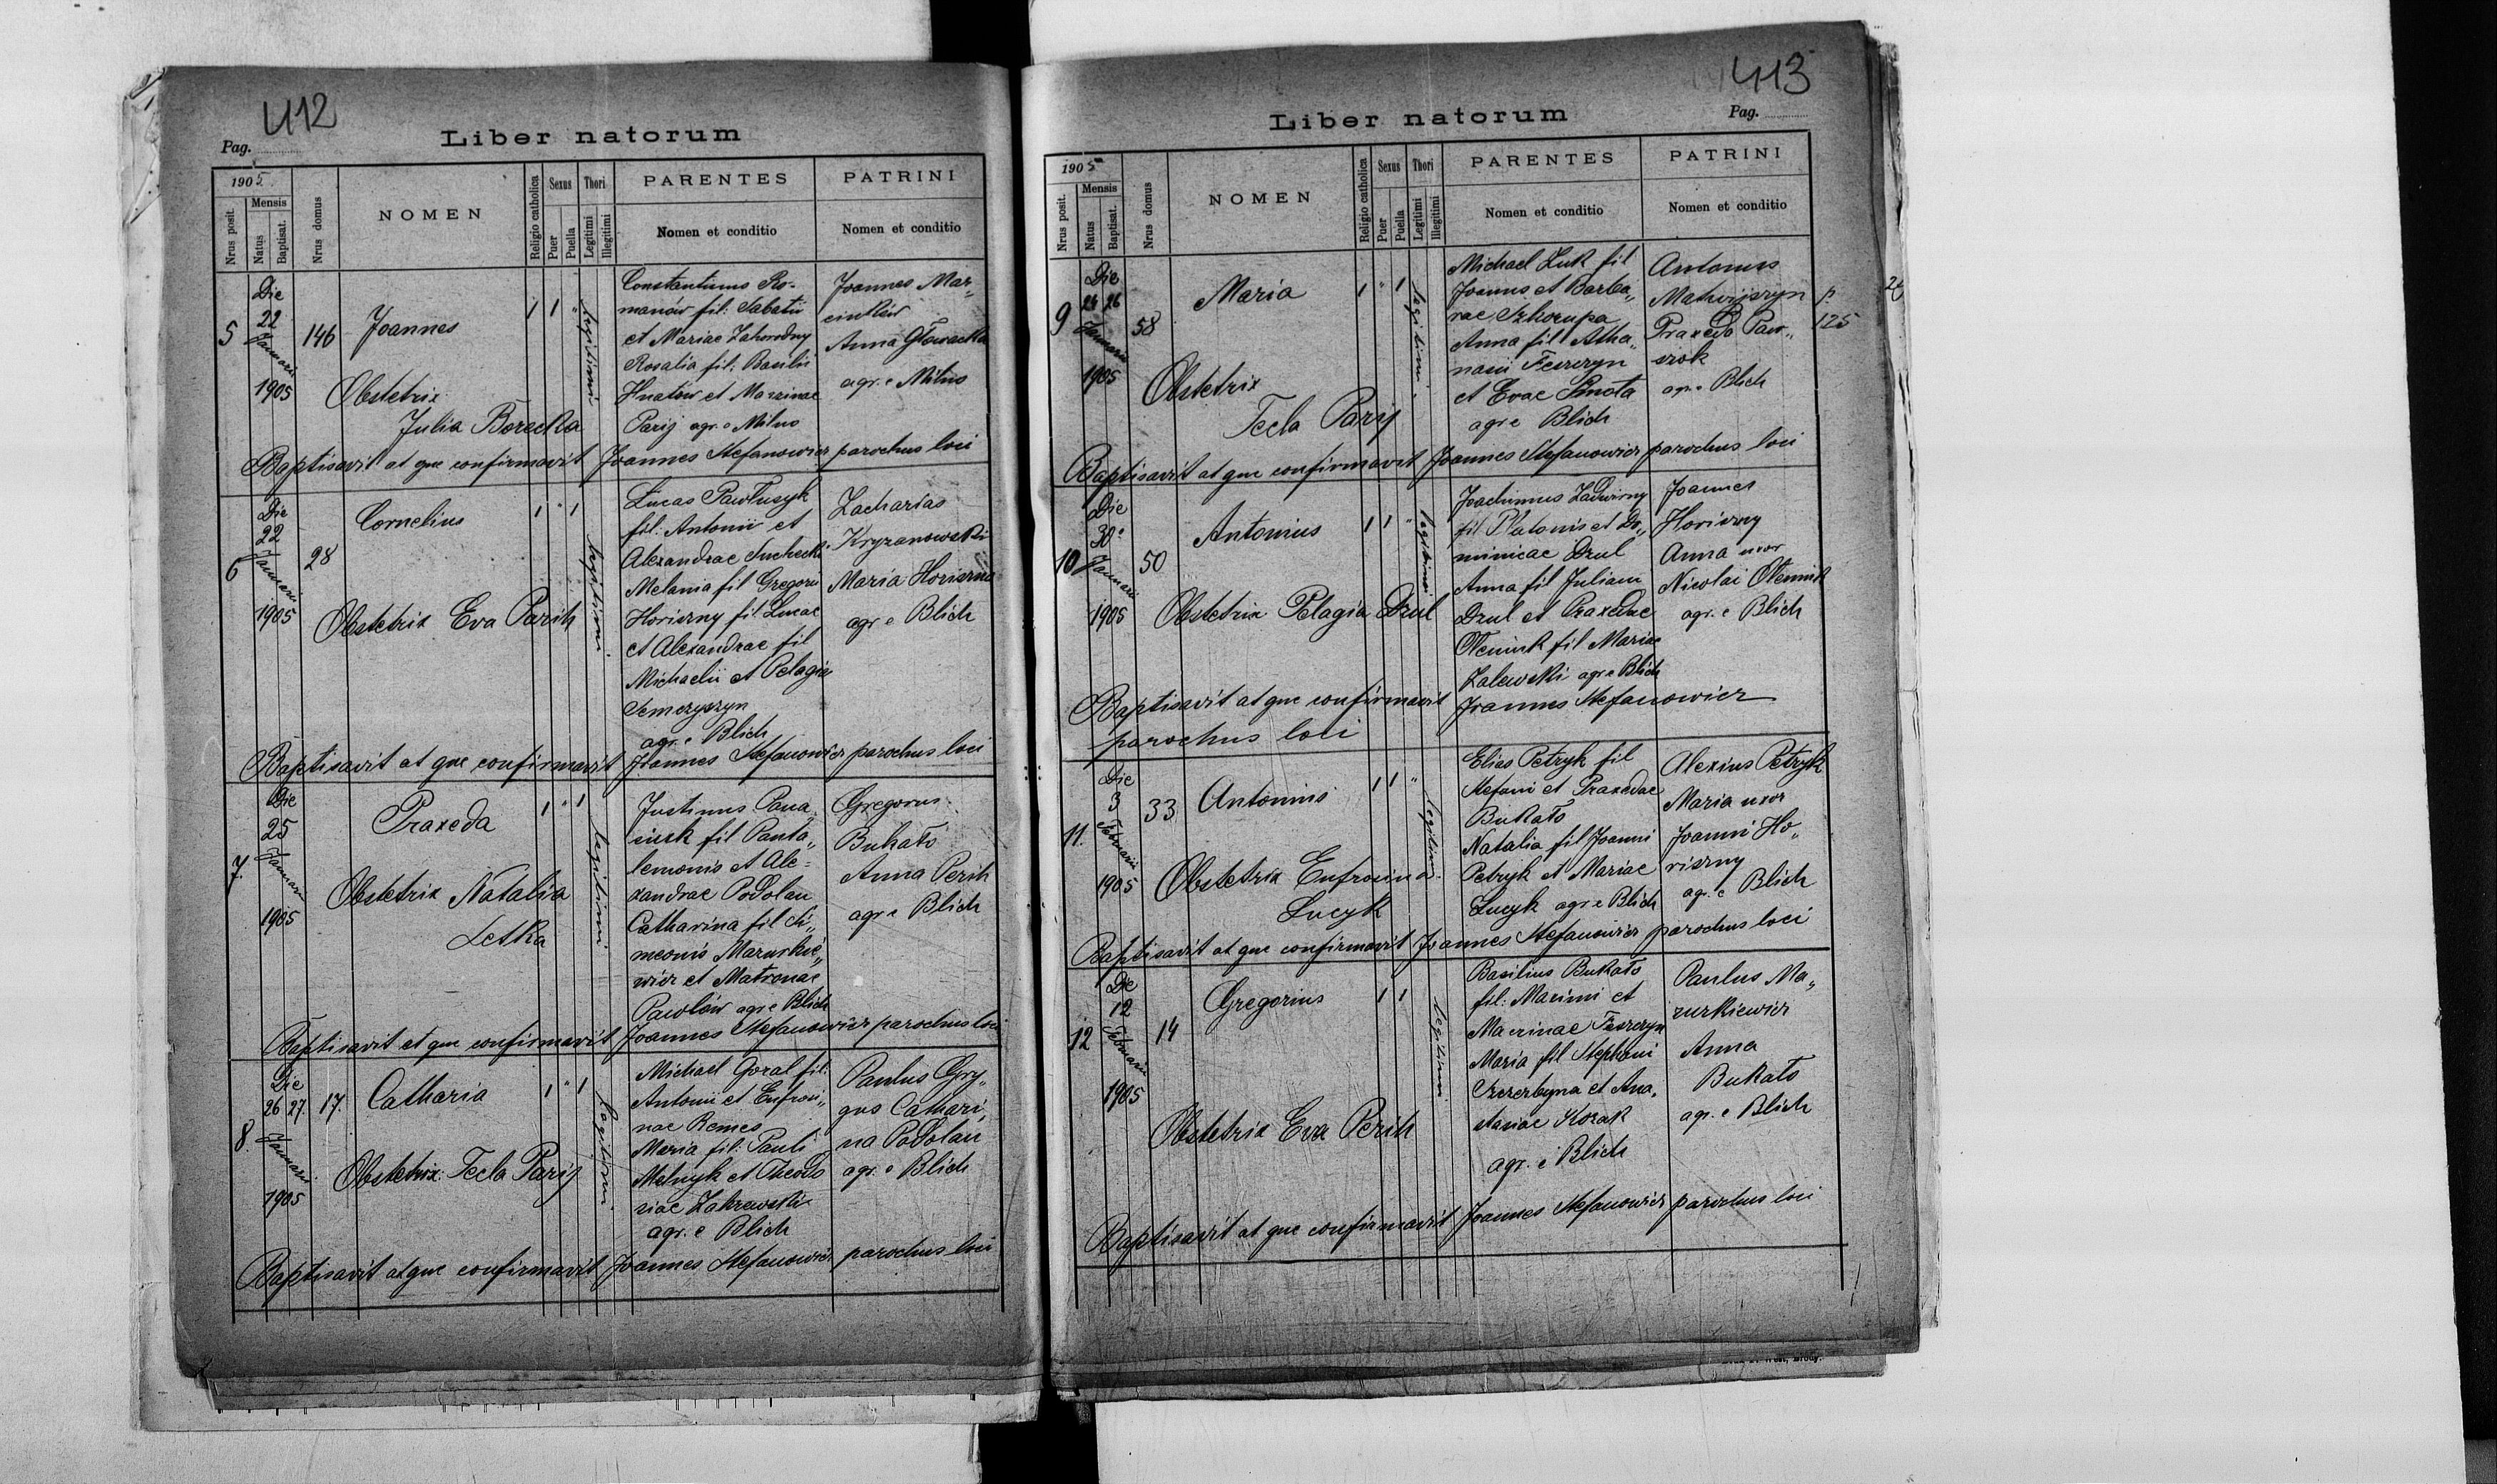 412
Pag.
Liber natorum
1905
Nrus posit.
Mensis
Natus
Baptisat.
Nrus domus
NOMEN
Religio catholica
Sexus
Puer
Puella
Thori
Legitimi
Illegitimi
PARENTES
Nomen et conditio
PATRINI
Nomen et conditio
5
Die
22
Januarii
1905
146
Joannes
1 1 "
legitimi
Obstetrix
Julia Borecka
Constantinus Ro-
manów fil: Sabatii
et Mariae Zahorodny
Rosalia fil: Basilii
Hnatow et Marinae
Parij agr. e Milno
Joannes Mar,,
cinków
Anna Głowacka
agr. e Milno
Baptisavit at que confirmavit Joannes Stefanowicz parochus loci
6
Die
22
Januarii
1905
28
Cornelius
1 " 1
legitimi
Obstetrix Eva Parih
Lucas Pawłuszyk
fil. Antonii et
Alexandrae Suchecki
Melania fil Gregorii
Horiszny fil Lucae
et Alexandrae fil
Michaelii et Pelagia
Semczyszyn
agr. e Blich
Zacharias
Kryzanowski
Maria Horiszna
agr e Blich
Baptisavit at que confirmavit Joannes Stefanowicz parochus loci
7.
Die
25
Januarii
1905
Praxeda
1 " 1
legitimi
Obstetrix Natalia
Letka
Justinus Pana
siuk fil Panta,,
lemonis et Ale=
xandrae Podolan
Catharina fil Si,,
meonis Mazurkie,,
wicz et Matronae
Pawlów agr e Blich
Gregorus
Bukato
Anna Perih
agr e Blich
Baptisavit et que confirmavit Joannes Stefanowicz parochus loci
8.
Die
26 27.
Januarii
1905
17.
Catharia
1 " 1
legitimi
Obstetrix: Tecla Parij
Michael Goral fil:
Antonii et Eufrosi,,
nae Remes
Maria fil: Pauli
Melnyk et Theodo
siae Zakrzewski
agr. e Blich
Paulus Gry,,
gus Cathari,,
na Podolan
agr. e Blich
Baptisavit atque confirmavit Joannes Stefanowicz parochus loci
413
Liber natorum
Pag.
1905
Nrus posit.
Mensis
Natus
Baptisat.
Nrus domus
NOMEN
Religio catholica
Sexus
Puer
Puella
Thori
Legitimi
Illegitimi
PARENTES
Nomen et conditio
PATRINI
Nomen et conditio
9
Die
24 26
Januarii
1905
58
Maria
1 " 1
legitimi
Obstetrix
Tecla Parij
Michael Luk fil
Joannis et Barba,,
rae Szkorupa
Anna fil Atha,,
nasii Feszczyn
et Evae Smota
agr e Blich
Antonius
Matwijszyn
Praxeda Paw,,
szok
agr. e Blich
p.
125
Baptisavit at que confirmavit Joannes Stefanowicz parochus loci
10
Die
30
Januarii
1905
50
Antonius
1 1 "
legitimi
Obstetrix Pelagia Dzul
Joachimus Zadwirny
fil Platonis et Do,,
minicae Dzul
Anna fil Juliani
Dzul et Praxedae
Oleniuk fil Mariae
Zalewski agr e Blich
Joannes
Horiszny
Anna uxor
Nicolai Oleniuk
agr. e Blich
Baptisavit at que confirmavit Joannes Stefanowicz
parochus loci
11.
Die
3
Februarii
1905
33
Antonius
1 1 "
legitimi
Obstetrix Eufrosina
Lucyk
Elias Petryk fil
Stefani et Praxedae
Bukato
Natalia fil Joanni
Petryk et Mariae
Lucyk agr e Blich
Alexius Petryk
Maria uxor
Joanni Ho,,
riszny
agr. e Blich
Baptisavit at que confirmavit Joannes Stefanowicz parochus loci
12
Die
12
Februarii
1905
14
Gregorius
1 1
legitimi
Obstetrix Eva Perih
Basilius Bukato
fil: Maximi et
Macrinae Feszczyn
Maria fil Stephani
Szczerbyna et Ana,,
stasiae Kozak
agr. e Blich
Paulus Ma,,
zurkiewicz
Anna
Bukato
agr. e Blich
Baptisavit at que confirmavit Joannes Stefanowicz parochus loci
West, Brody.